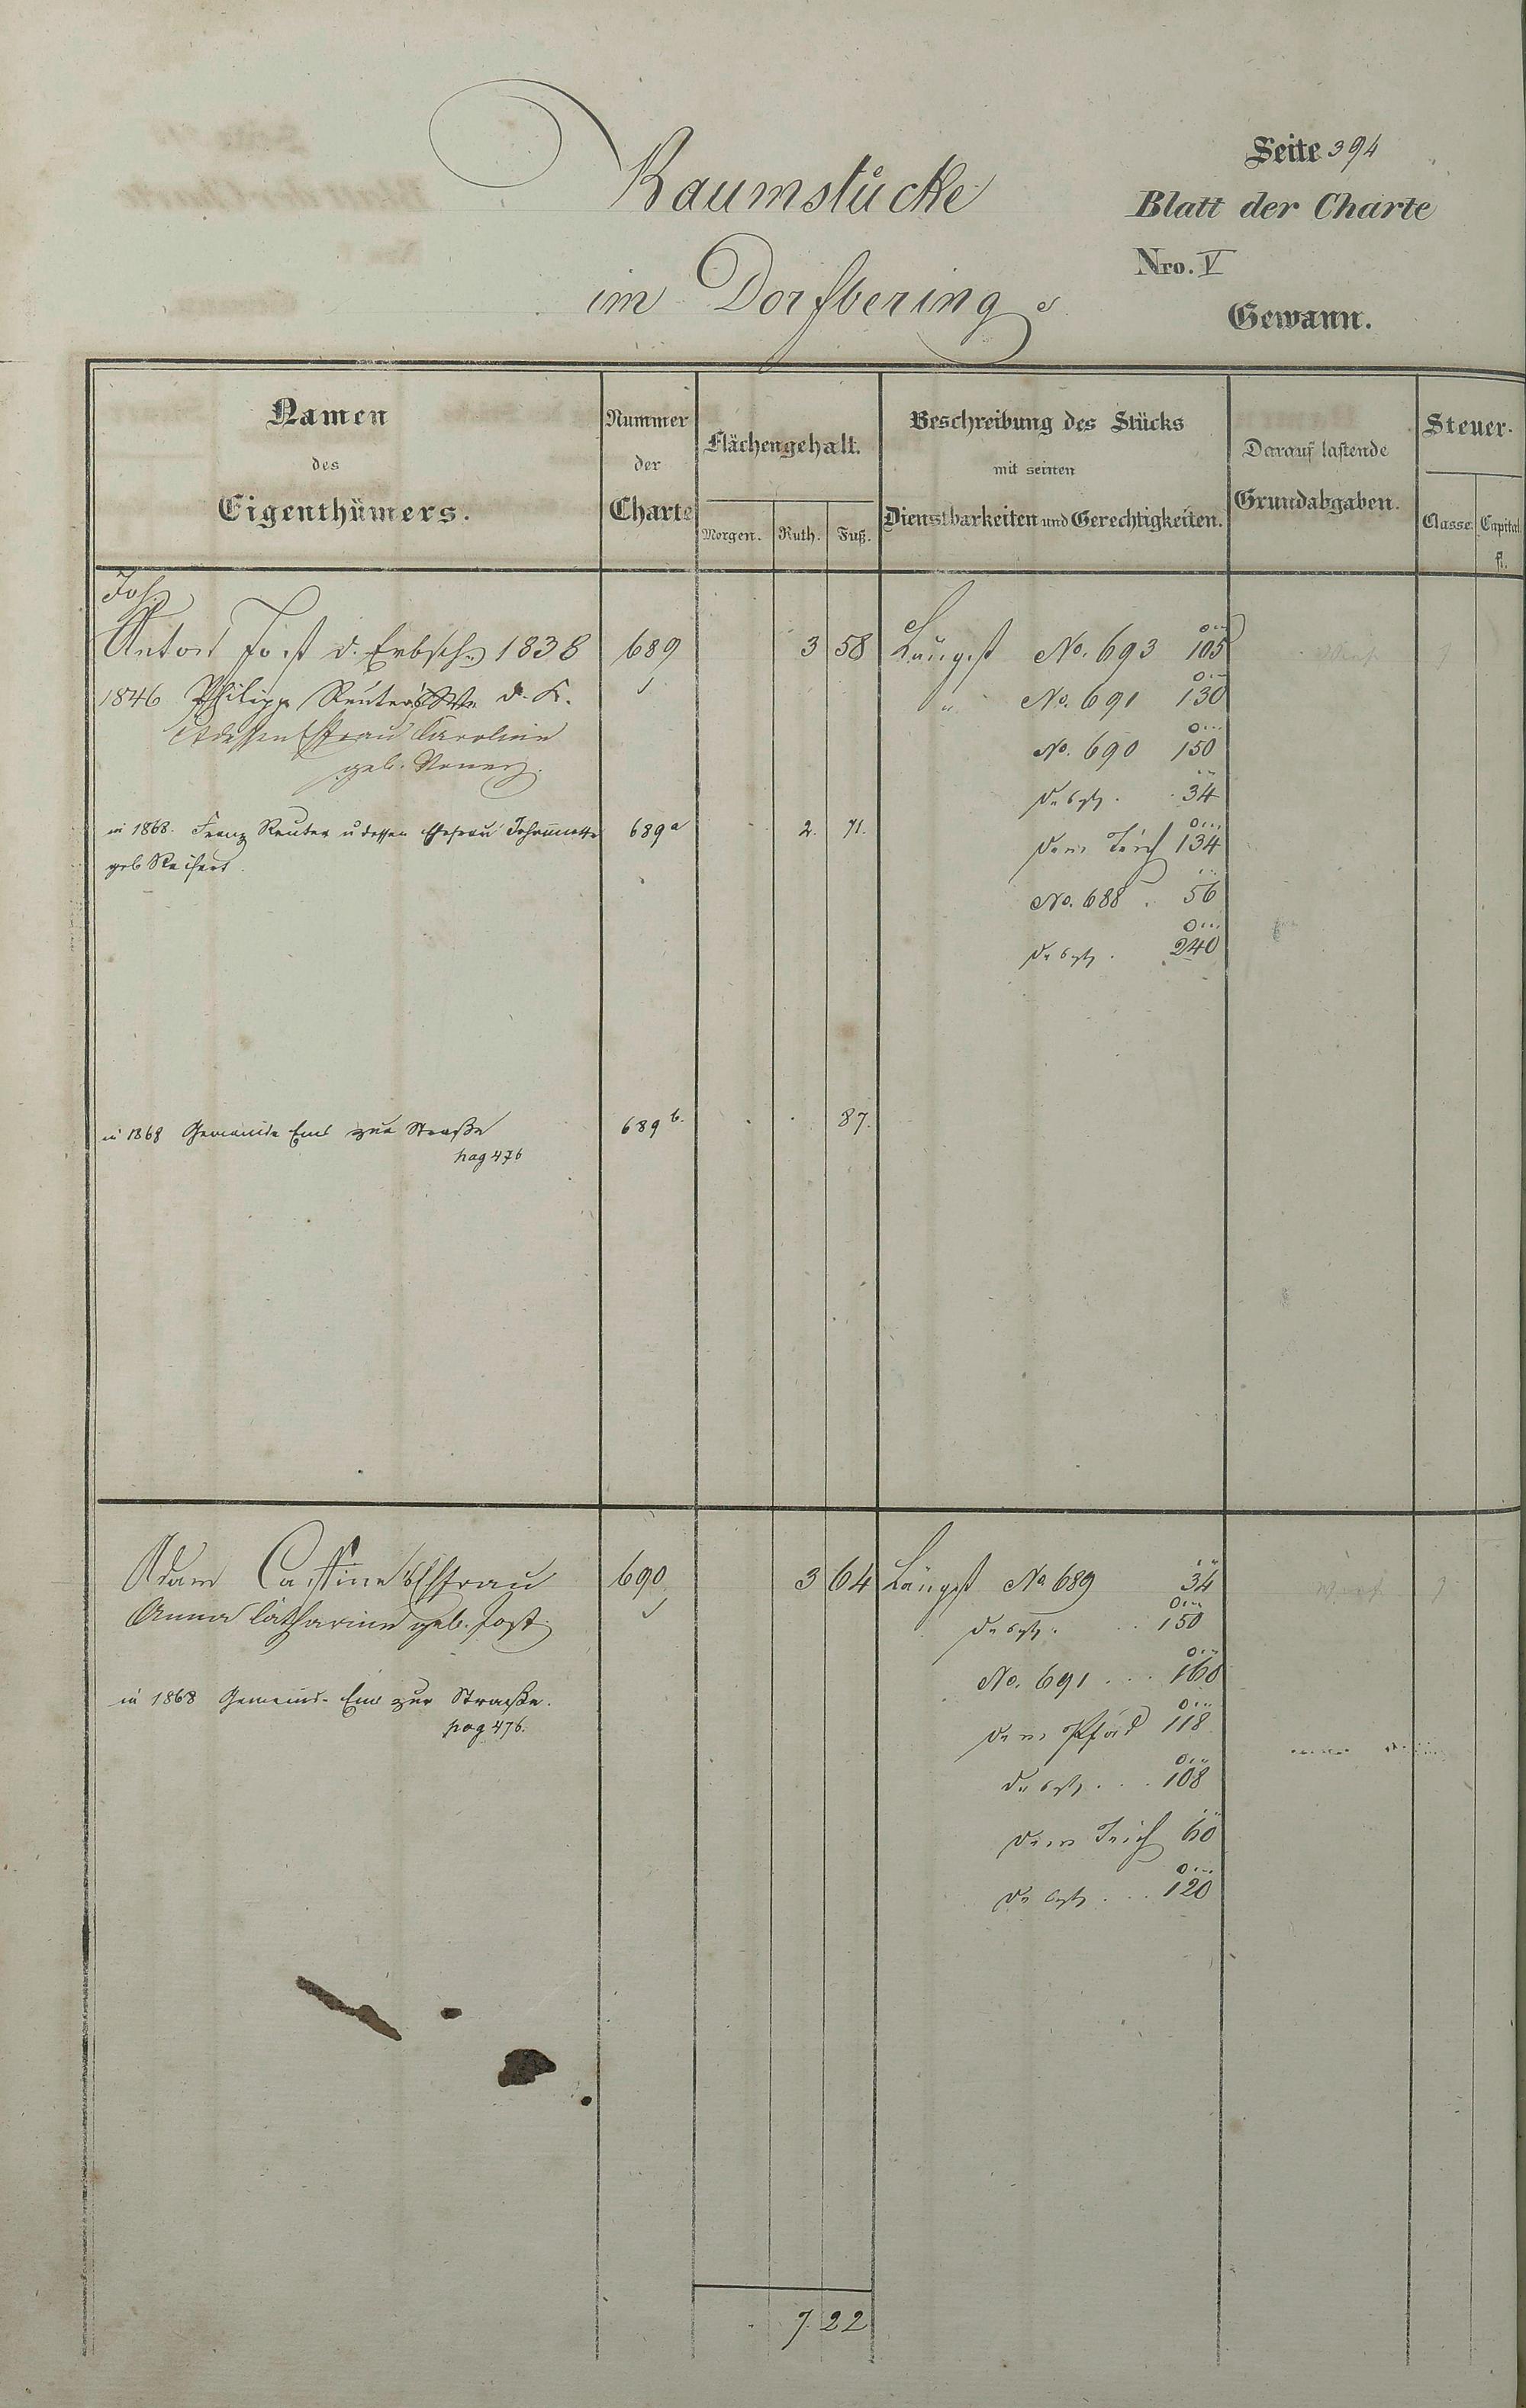 Seite 394
Raumstücke
Blatt der Charte
Nro. V
im Dorfbering
Gewann.
Namen des Eigenthümers.
Nummer der Charte
Flächengehalt.
Morgen. Ruth. Fuß.
Beschreibung des Stücks mit seinen Dienstbarkeiten und Gerechtigkeiten.
Darauf lastende Grundabgaben.
Steuer-
Classe. Capital. fl.
Joh.
Anton Jost d. Erbsch. 1838 689 3 58 Längst No. 693 105
1846 Philipp Reuter's d. K. " No. 691 130
dessen Ehfrau Caroline No. 690 150
geb.
desgl. 34
in 1868. Franz Reuter u dessen Ehefrau Johannette 689a 2. 71. dem Teich 134
geb
No. 688 . 56
desgl. 240
in 1868 Gemeinde Ems zur Straße 689b. 87.
pag 476
Adam Ehfrau 690 3 64 Längst No 689 34
Anna Catharina geb. Jost. desgl. 150
No. 691 . . . 160
in 1868 Gemeinde Ems zur Straße.
pag 476.
dem Pfad 118
desgl. . . 108
dem Teich 60
desgl. . . 120
7 22